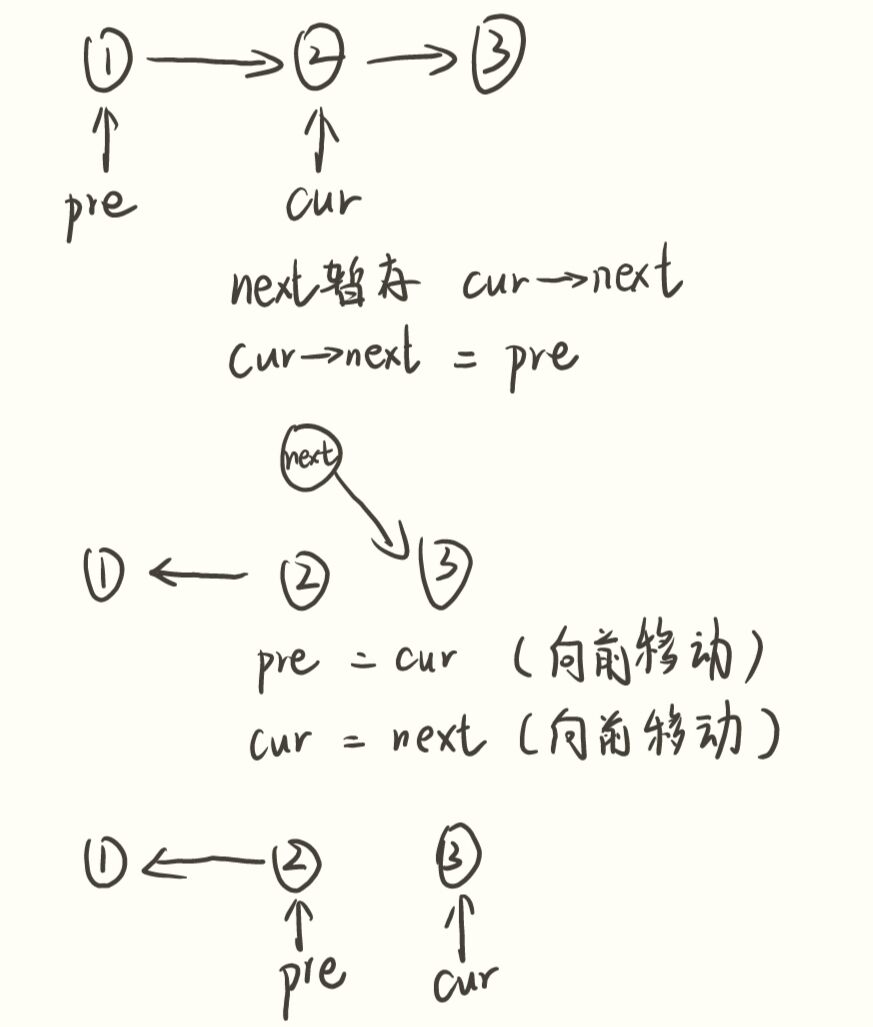 ① → ② → ③
pre cur
next暂存 cur→next
cur→next = pre
next
① ← ② ③
pre = cur (向前移动)
cur = next (向前移动)
① ← ② ③
pre cur